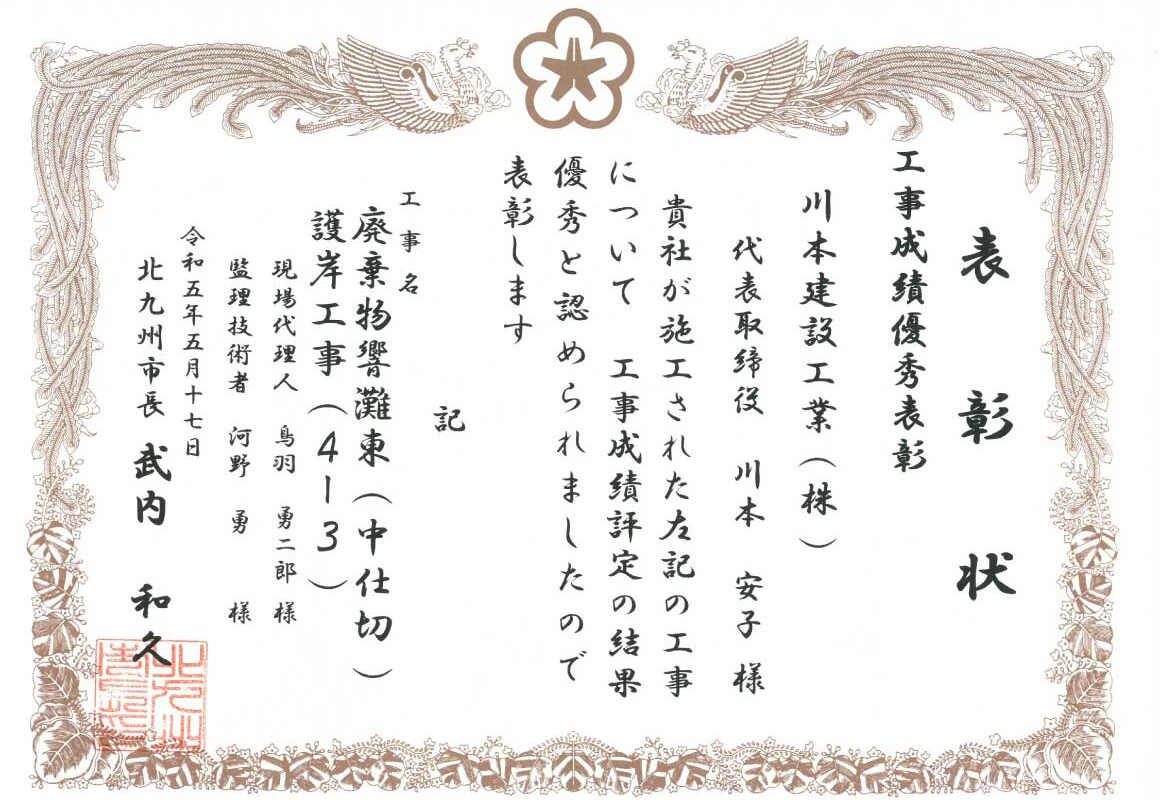 表彰状
工事成績優秀表彰
川本建設工業(株)
代表取締役 川本 安子 様
貴社が施工された左記の工事
について 工事成績評定の結果
優秀と認められましたので
表彰します
記
工事名
廃棄物響灘東(中仕切)
護岸工事(4-3)
現場代理人 鳥羽 勇二郎 様
監理技術者 河野 勇 様
令和五年五月十七日
北九州市長 武内 和久